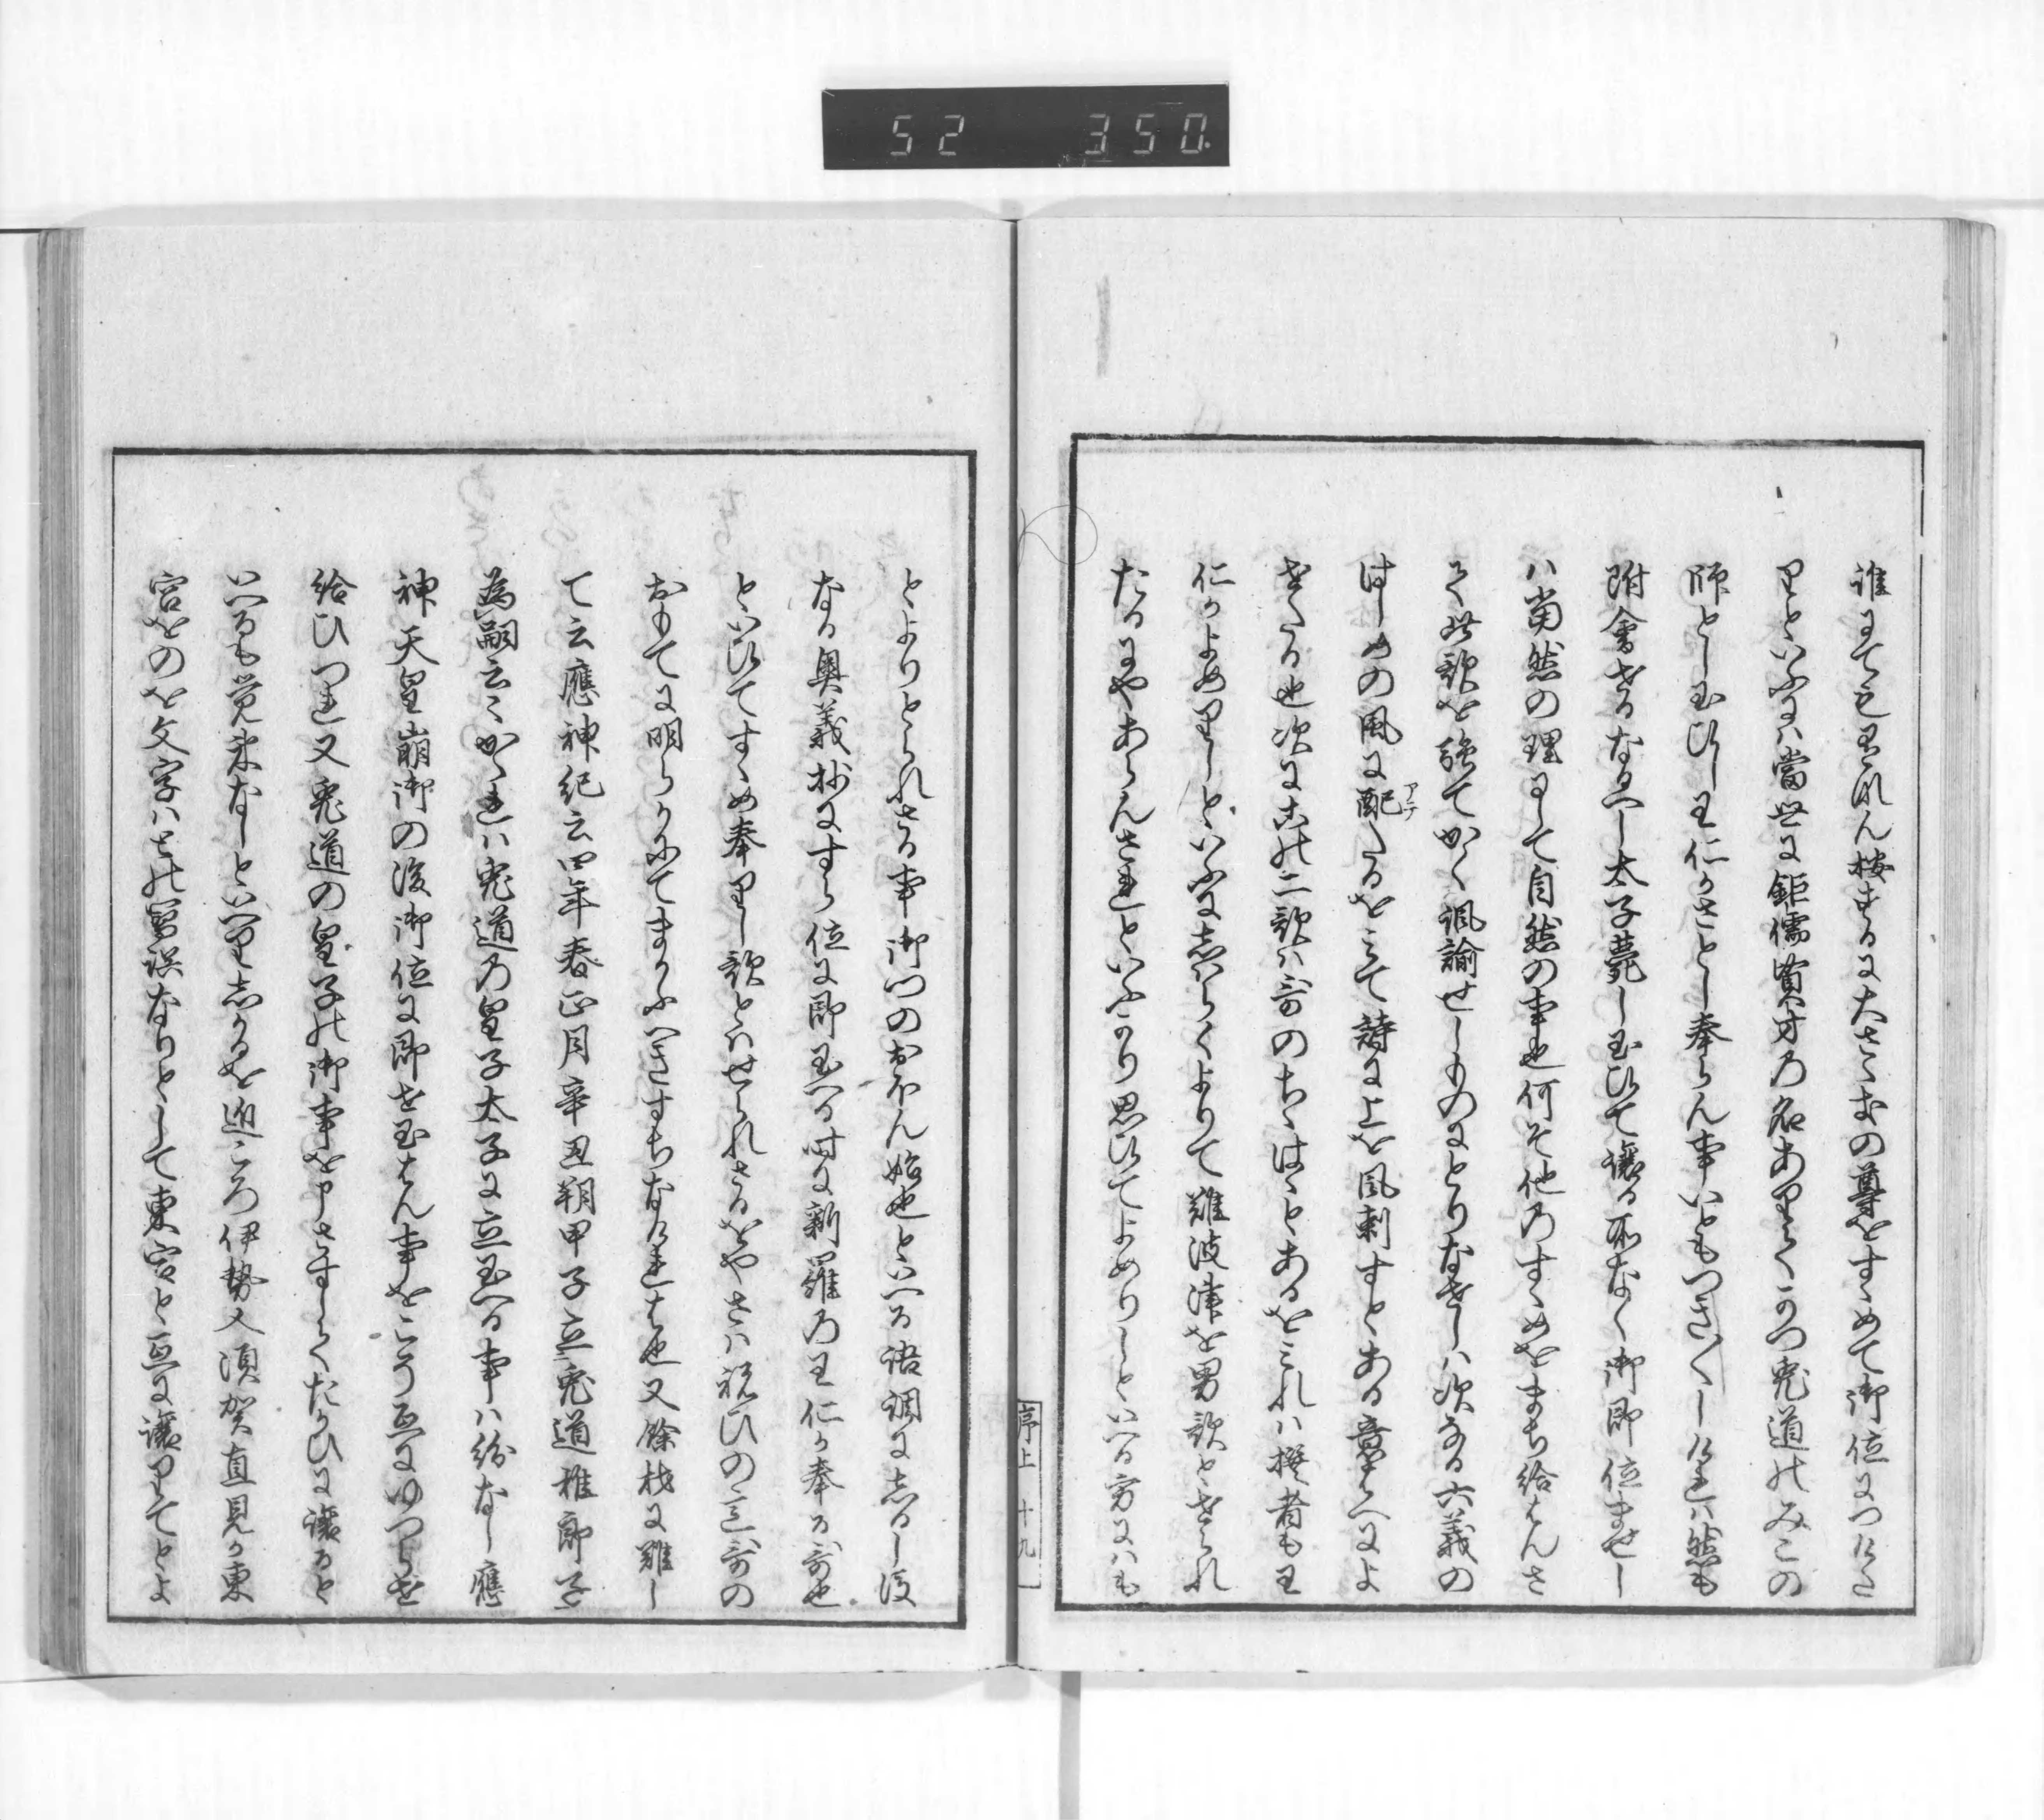 52 350.
誰にてもあれん按するに大さゝきの尊をすゝめて御位につけた
りといふには當世に鉅儒賢才の名ありてかつ兎道のみこの
師とし玉ひし王仁かさとし奉らん事いともつき〳〵しけれは然も
附會せるなるへし太子薨し玉ひて讓る所なく御即位ませし
ハ當然の理にして自然の事也何そ他のすゝめをまち給はんさ
て此歌を強てかく諷諭せしものにとりなせしハ次なる六義の
はしめの風に配アテたるをみて詩に上を風刺すとある意をうへによ
せたる也次に此二歌ハ哥のちゝはゝとあるをみれハ撰者も王
仁かよめりしといふにしはらくよりて難波津を男歌とせられ
たるにやあらんされといふかり思ひてよめりしといへる方にハも
序上 十九
とよりとられさる事御門のおほん始也といへる語調にしるし後
なる奥義抄にすら位に即玉へる时に新羅の王仁か奉る哥也
といひてすゝめ奉りし歌とハせられさるをやさハ祝ひの言哥の
おもてに明らかにてまかふへきすちなけれは也又餘材に難し
て云應神紀云四年春正月辛丑朔甲子立菟道稚郎子
為嗣云〻かゝれハ兎道の皇子太子に立玉へる事ハ紛なし應
神天皇崩御の後御位に即せ玉はん事をこそ互にゆつらせ
給ひつれ又兎道の皇子の御事を申さすしてたかひに讓ると
いへるも覚束なしといへりしかるを近ころ伊勢人須賀直見か東
宮をのを文字ハもの冩誤なりとして東宮と互に讓りてとよ